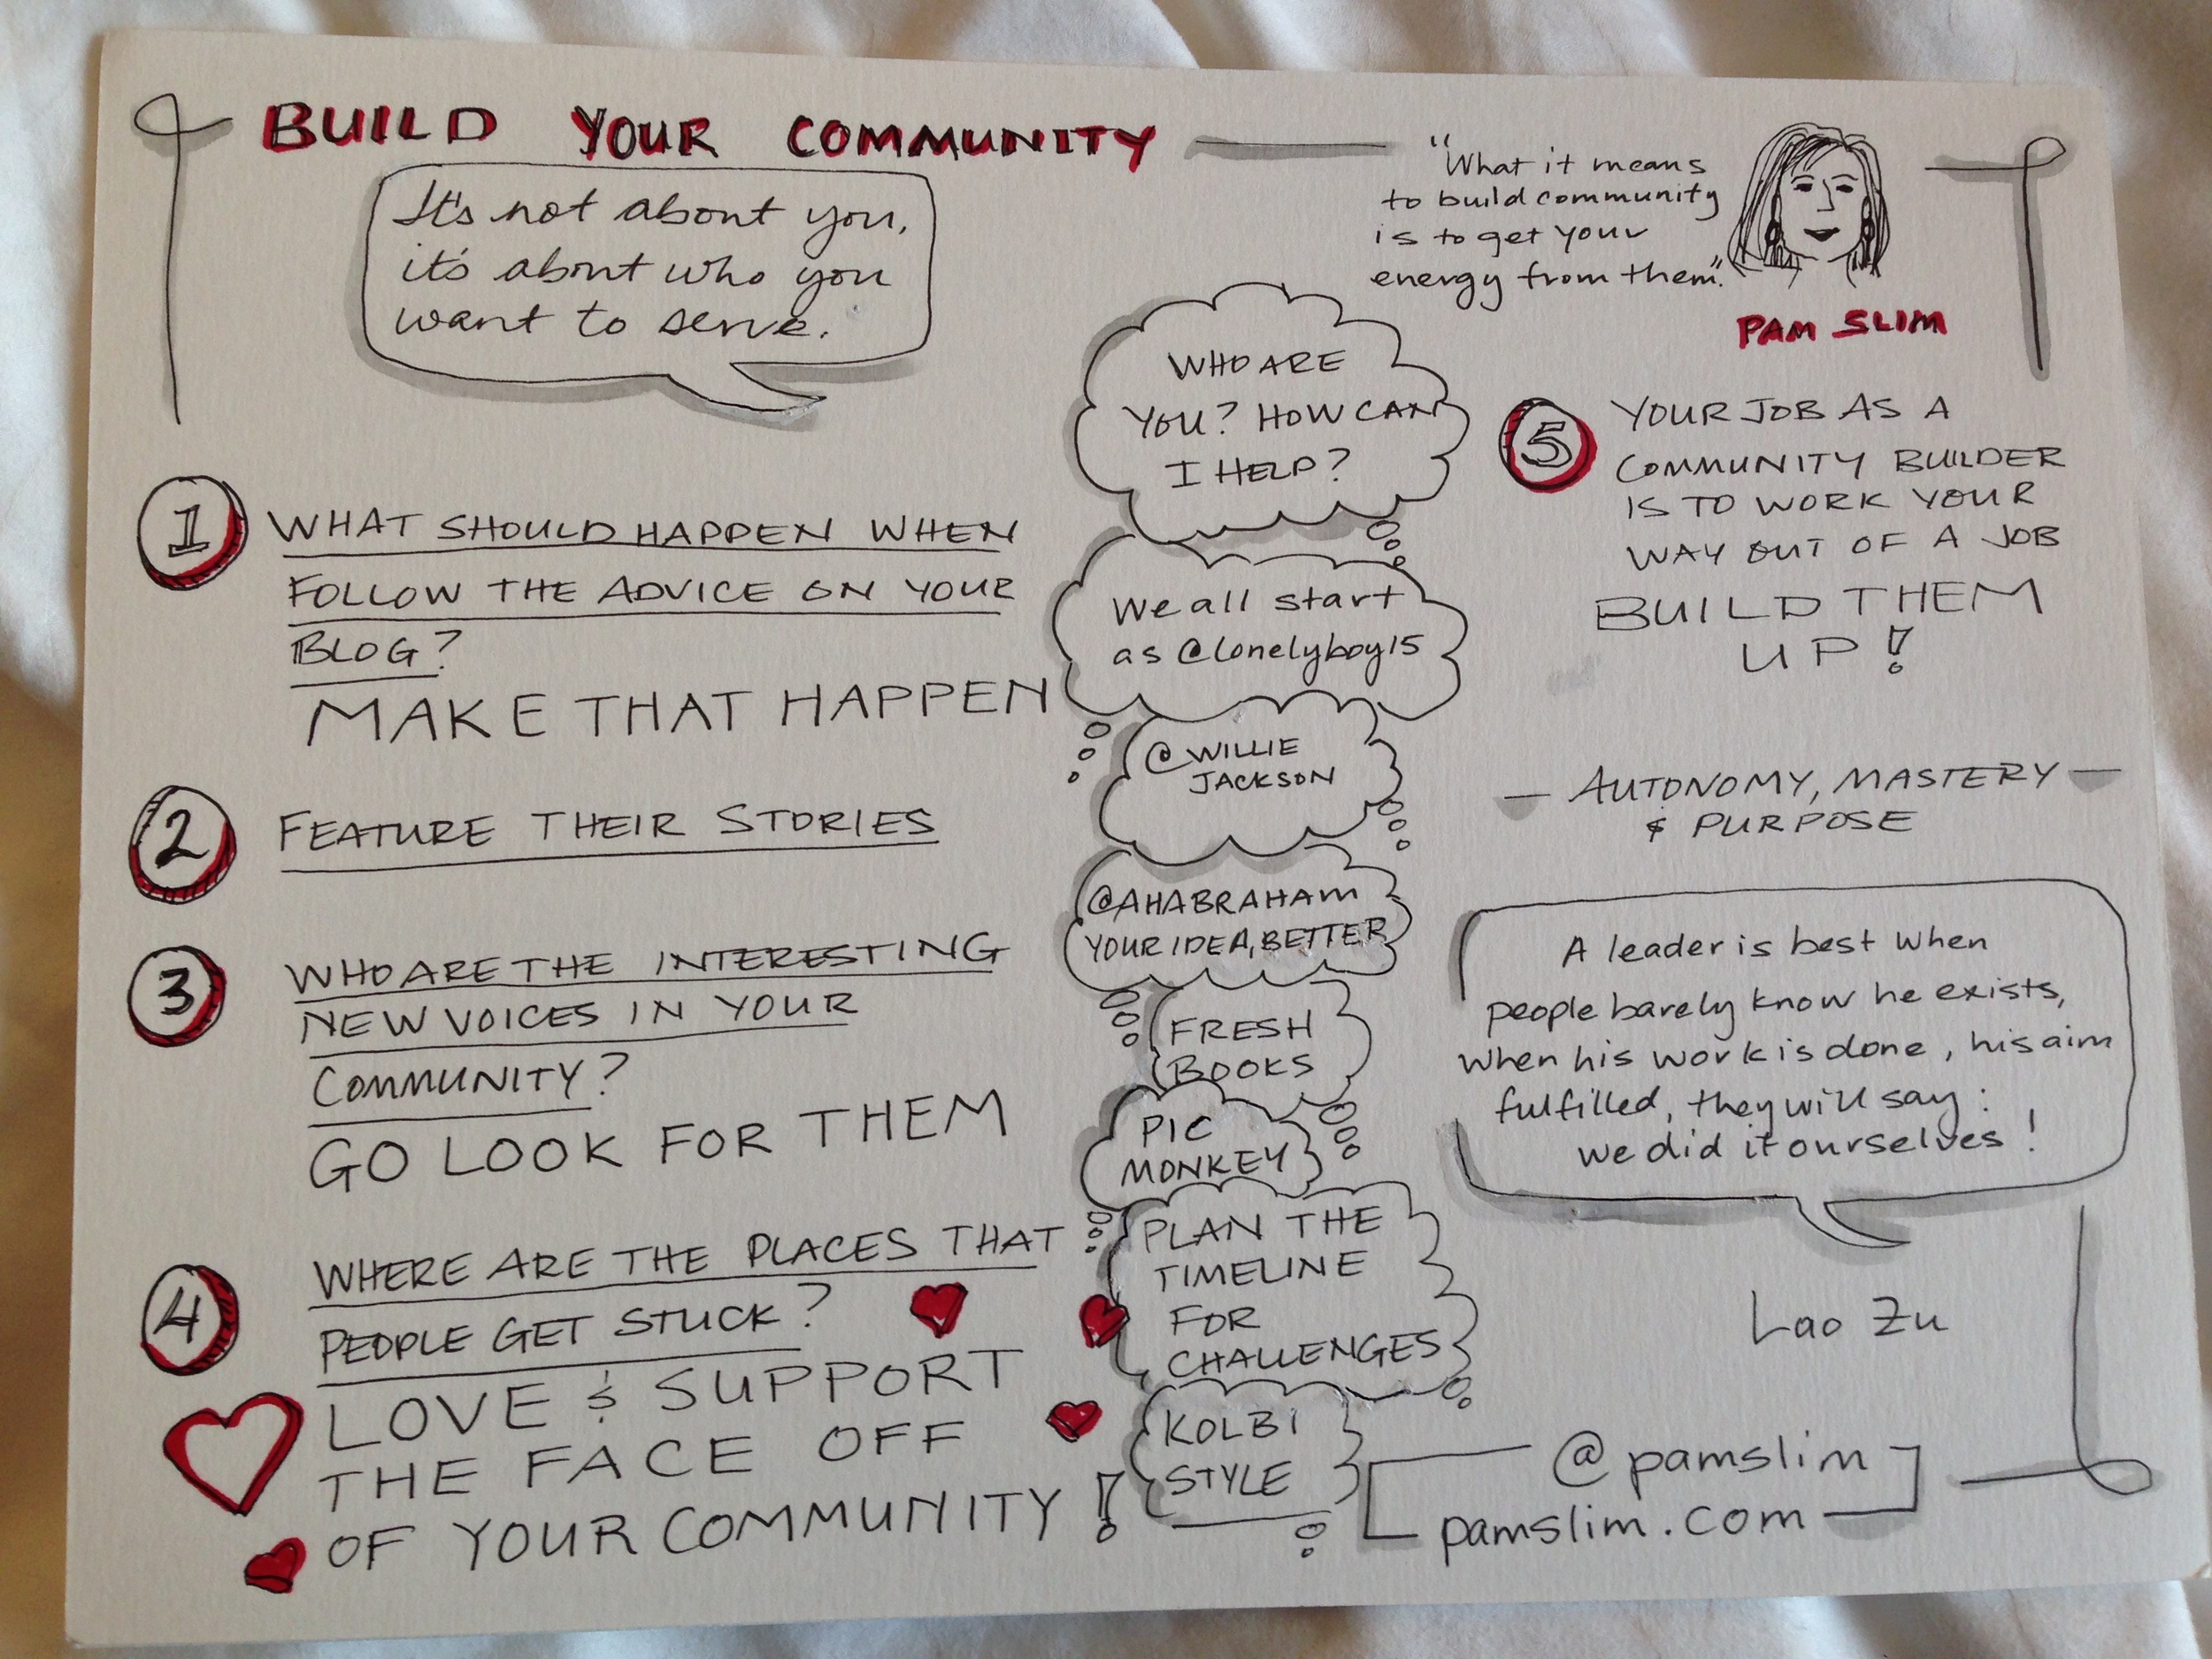 BUILD YOUR COMMUNITY
It's not about you,
it's about who you
want to serve.
"What it means
to build community
is to get your
energy from them".
PAM SLIM
1
WHAT SHOULD HAPPEN WHEN
FOLLOW THE ADVICE ON YOUR
BLOG?
MAKE THAT HAPPEN
2
FEATURE THEIR STORIES
3
WHO ARE THE INTERESTING
NEW VOICES IN YOUR
COMMUNITY?
GO LOOK FOR THEM
4
WHERE ARE THE PLACES THAT
PEOPLE GET STUCK?
LOVE & SUPPORT
THE FACE OFF
OF YOUR COMMUNITY!
WHO ARE
YOU? HOW CAN
I HELP?
We all start
as @lonelyboy15
@WILLIE
JACKSON
@AHABRAHAM
YOUR IDEA, BETTER
FRESH
BOOKS
PIC
MONKEY
PLAN THE
TIMELINE
FOR
CHALLENGES
KOLBI
STYLE
5
YOUR JOB AS A
COMMUNITY BUILDER
IS TO WORK YOUR
WAY OUT OF A JOB
BUILD THEM
UP!
- AUTONOMY, MASTERY -
& PURPOSE
A leader is best when
people barely know he exists,
when his work is done, his aim
fulfilled, they will say:
we did it ourselves!
Lao Zu
@pamslim
pamslim.com